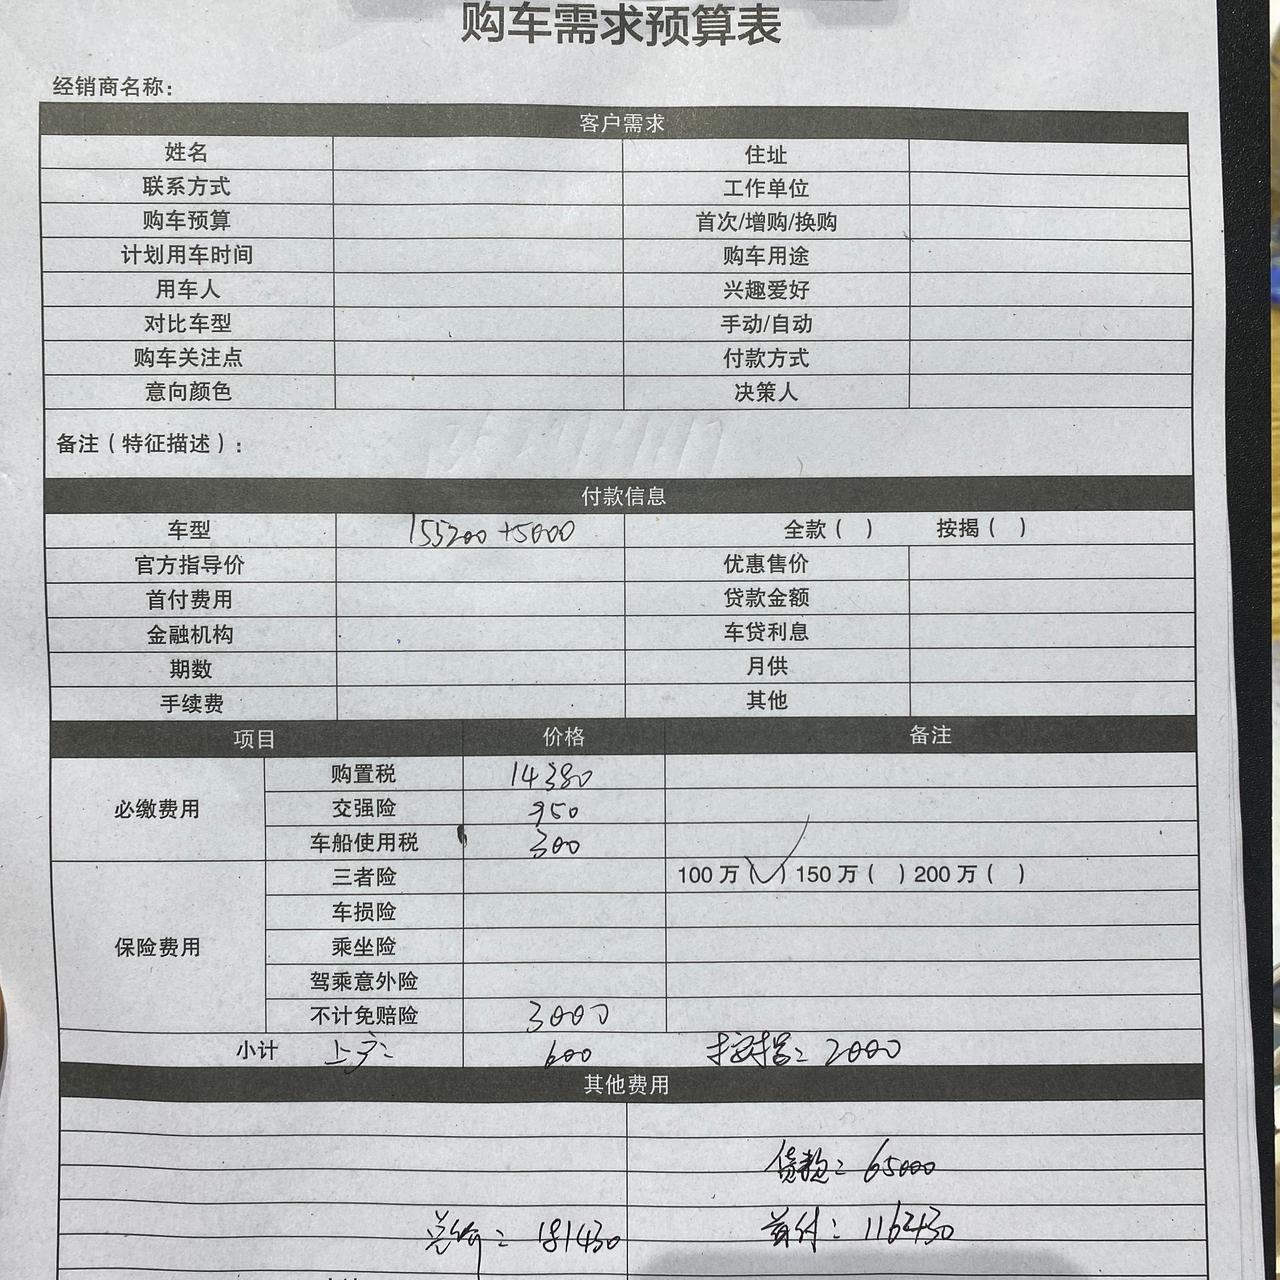 购车需求预算表
经销商名称:
客户需求
姓名 住址
联系方式 工作单位
购车预算 首次/增购/换购
计划用车时间 购车用途
用车人 兴趣爱好
对比车型 手动/自动
购车关注点 付款方式
意向颜色 决策人
备注(特征描述):
付款信息
车型 155200+5000 全款( ) 按揭( )
官方指导价 优惠售价
首付费用 贷款金额
金融机构 车贷利息
期数 月供
手续费 其他
项目 价格 备注
购置税 14380
必缴费用 交强险 950
车船使用税 300
三者险 100万(✓)150万( )200万( )
车损险
保险费用 乘坐险
驾乘意外险
不计免赔险 3000
小计 上户: 600 按揭: 2000
其他费用
贷款: 65000
总价: 181430 首付: 116430